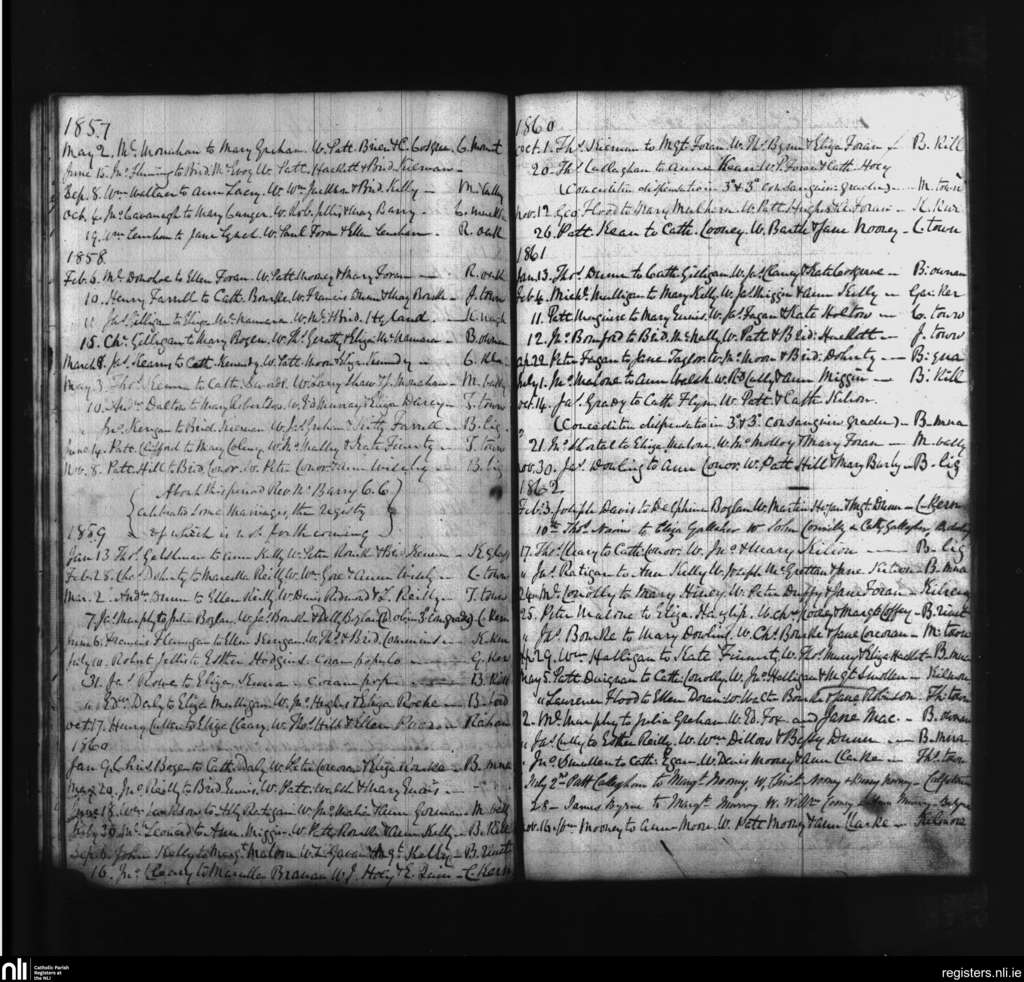 1857
May 2. Mc. Monahan to Mary Graham W. Patt. Brien & C. Cosgrue. C. mount
June 15. Jno. Fleming to Brid. McEvoy W. Patt. Hackett & Brid. Kiernan
Sep. 8. Wm Wallace to Ann Lacy. W. Wm & Brid. Kelly - M. Cully
Oct. 4. Jno. Cavanagh to Mary Ganger. W. Robt. Jellis & Mary Barry -
19. Wm Lenehan to Jane Lynch. W. Paul Foran & Ellen Lenehan. R. oak
1858
Feb. 6. Mc. Donohoe to Ellen Foran. W. Patt Mooney & Mary Foran - R. oak
10. Henry Farrell to Cath. Bourke. W. Francis Dunn & Mary Bourke - J. town
" Jas. Gilligan to Eliza McNamara. W. Mc. & Brid. Hyland -
15. Chr. Gilligan to Mary Bogan. W. Ths. Geraty & Eliza McNamara B. ownan
March 8. Jas. Kearny to Cath. Kennedy. W. Patt. Moor & Eliza Kennedy - C.
May 3. Thos. to Cath. W. Larry Shaw & J. Monahan - M. bully
10. Andw. Dalton to Mary Robertson. W. Ed Murray & Eliza Darcy - T. town
" Jno. Kergan to Brid. Kiernan W. Jas. Graham & Farrell - B. lig
June 14. Patt. Clifford to Mary Coleny. W. Mc Nalley & Kate Finnerty T. town
Nov. 8. Patt. Hill to Brid. Conor. W. Peter Conor & Ann - B. lig
About this period Rev. Mr. Barry C.C.
celebrated some marriages, the registry
of which is not forthcoming
1859
Jan 13 Thos. Goldsman to Ann Kelly. W. Peter Rourke & Brid. -
Feb. 28. Chs. Doherty to Marcella Reilly W. Wm. Gore & Anne - C. town
Mar. 2. Andw. Dunne to Ellen Reilly W. Denis Redmond & L. Reilly - T. town
7. Jas. Murphy to Julia Boglan. W. Jas. Bourke & Dell. Boglan C. Kern
June 6. Francis Flanagan to Ellen Kerrgan. W. Ths. & Brid. Commins. K. ken
July 10. Robert Jellis to Esther Hodgins. coram populo - G. Ker
31. Jas. Rowe to Eliza. coram pop. - B. Kill
" Edw. Daly to Eliza Mulligan W. Jno. Hughes & Eliza Rocke - B. ford
Oct 17. Henry Cullen to Eliza Cleary. W. Ths. Hill & Ellen - Rahan
1860
Jan 9. Chris. Bogan to Cath. Daly. W. Peter Corcoran & Eliza Rourke - B. mna
May 20. Jno. Reilly to Brid. Ennis. W. Patt. Walsh & Mary Ennis
June 18. Wm to Ally Ratigan W. Jno. & Anne Gorman - M. bell
July 30. Leonard to Ann Miggin. W. Patt. Rourke & Ann Kelly - B. Kill
Sep. 6. John Kelly to Margt. Malone. W. L. Gavan & Mgt. Kelly - B.
16. Jno. Cleary to Marcella Branan W. J. Hoey & E. - C. Kern
1860
Oct. 1. Ths. Kiernan to Mgt. Foran. W. Ths. Byrne & Eliza Foran - B. Kill
20. Ths. Callaghan to Anne Kean W. P. Foran & Cath. Hoey
(Concedita dispensation in 3° & 3° consanguin: gradu) - M. town
Nov. 12. Geo. Flood to Mary Mulhern. W. Patt. Hughes & - K. Kur
26. Patt. Kean to Cath. Cooney. W. Barth. & Jane Nooney - C. town
1861
Jan. 13. Thos. Dunne to Cath. Gilligan. W. Jas. & Kate Cosgrave - B: ownan
Feb 4. Michl. Mulligan to Mary Kelly. W. Jas. Miggin & Ann Kelly - Gar. ker
11. Patt Maguire to Mary Ennis. W. Jas. Fagan & Kate - C. town
12. Jno. Bomford to Brid. McNally. W. Patt & Brid. Hackett - J. town
22. Peter Fagan to Jane Taylor. W. Jno. Moon & Brid. Doherty - B: gna
July 1. Jno. Malone to Ann Walsh. W. Rd Cully & Ann Miggin - B: Kill
Oct. 14. Jas. Grady to Cath. Flyn. W. Patt. & Cath. Kelion.
(Concedita dispensation in 3° & 3° consanguin: gradu) - B. mna
21. Jno. Shortel to Eliza. Malone. W. Mc Molloy & Mary Foran - M. bally
Nov. 30. Jas. Dowling to Ann Conor. W. Patt Hill & Mary Burly - B. lig
1862
Feb. 3. Joseph Davis to Delphina Boglan. W. Martin Horan & Mgt. Dunn - C. Kern
10th Thos. to Eliza Gallaher W John Connolly & Cathy Gallagher
17. Ths. Cleary to Cath: Conor. W. Jno. & Mary Kelion - B. lig
" Jas. Ratigan to Ann Kelly. W. Joseph McGrattan & Anne Kelion - B. mna
24. Mc. Conolly to Mary Hiney. W. Peter Duffy & Jane Foran -
25. Peter Malone to Eliza Hayslip. W. Chr. Codey & Margt. Coffey -
" Jas. Bourke to Mary Dowling. W. Chs. Bourke & Jane Corcoran - M. town
29. Wm. Halligan to Kate Finnerty. W. Thos. Murry & Eliza Hackett - B. mna
May 5. Patt Duignan to Cath: Conolly. W. Jno. Halligan & Mgt Smollen -
" Lawrence Flood to Ellen Doran. W. Walter Bourke & Jane Robinson. Th. town
2. Mc. Murphy to Julia Graham W. Ed. Fox and Jane Mac. - B. ownan
" Jas. Cully to Esther Reilly. W. Wm. Dillon & Betsy Dunn - B. mna
" Jno. Smollen to Cath. Egan. W. Denis Mooney & Ann Clarke - Ths. town
July 2nd Patt Callaghan to Margt Moony W. Christ. Moony & Moony -
28 - James Byrne to Margt. Murray W. Wm Toomy & Murray -
Nov. 16. Wm Mooney to Ann Moore. W. Patt Mooney & Ann Clarke -
nli
Catholic Parish
Registers at
the NLI
registers.nli.ie